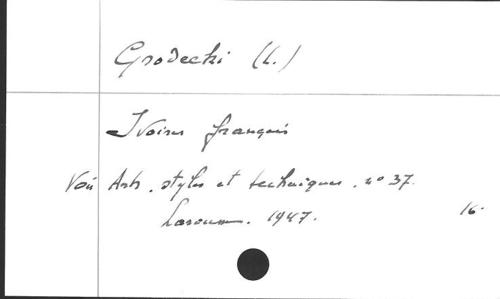 Grodecki (L.)
Ivoires français
Voir Arts, styles et techniques. n° 37.
Larousse. 1947.
16